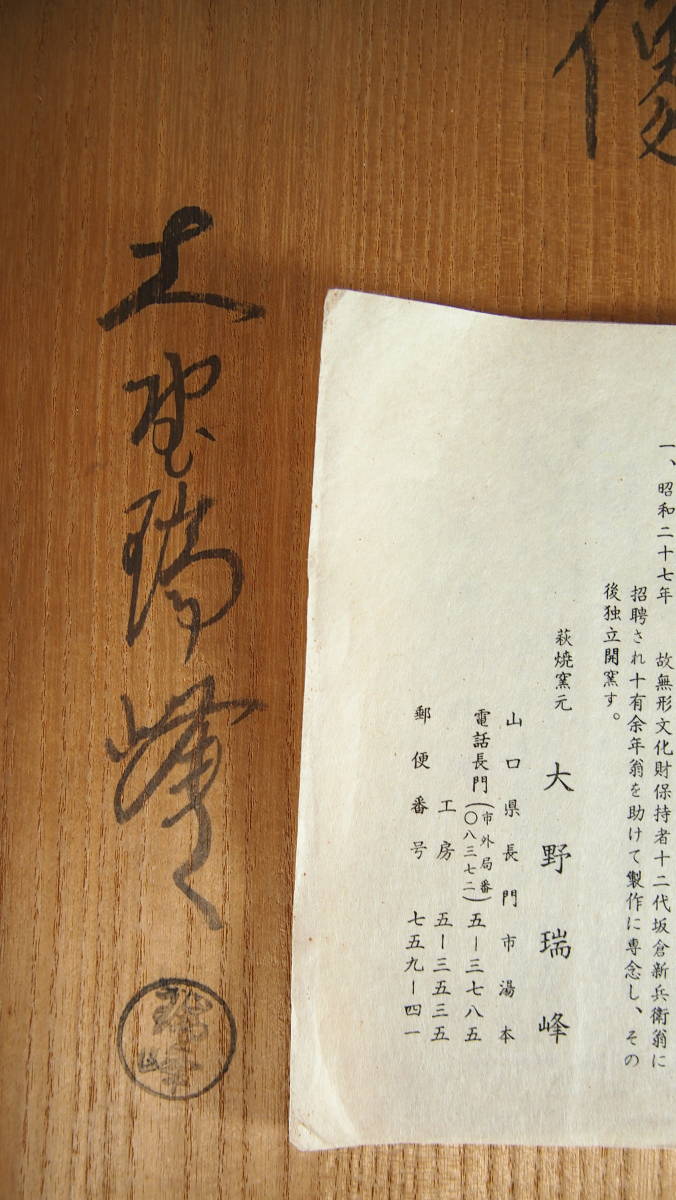 一、昭和二十七年　故無形文化財保持者十二代坂倉新兵衛翁に
招聘され十有余年翁を助けて製作に専念し、その
後独立開窯す。
萩焼窯元　大野瑞峰
山口県長門市湯本
電話長門(市外局番〇八三七二)五ー三七八五
工房　五ー三五三五
郵便番号　七五九ー四一
大野瑞峰
瑞峰